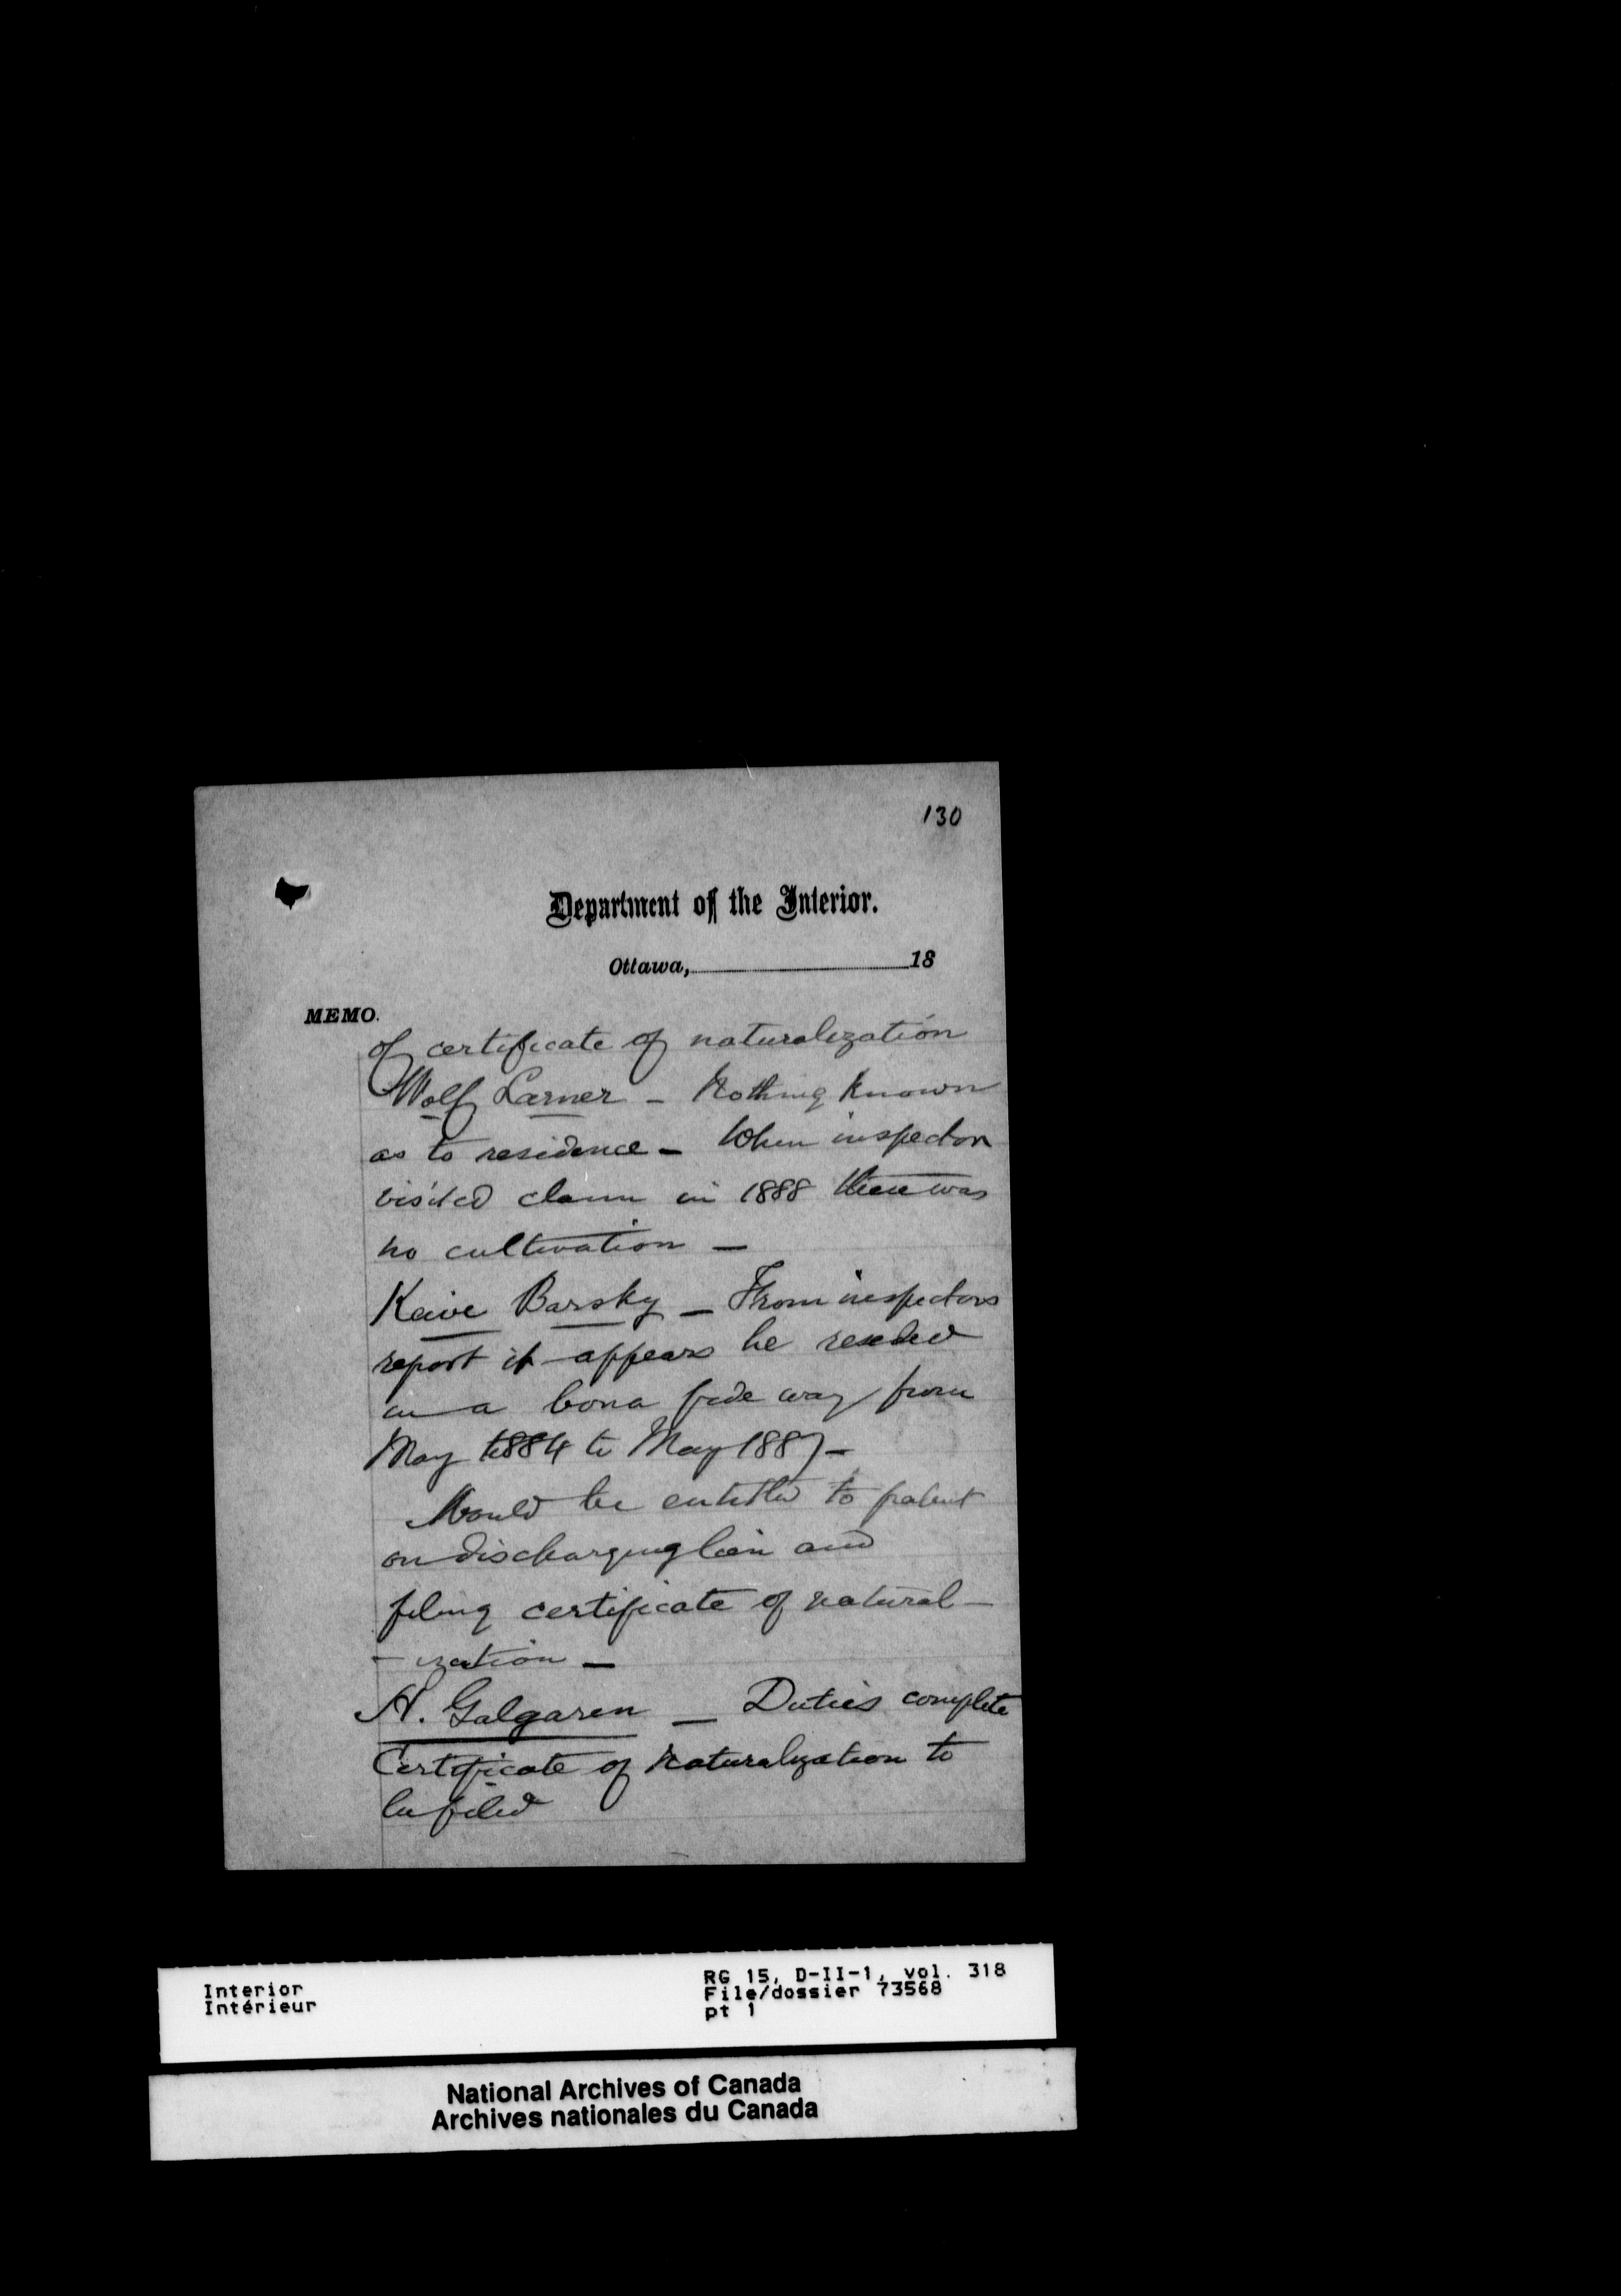 130
Department of the Interior.
Ottawa, 18
MEMO.
of certificate of naturalization
Wolf Larner – Nothing known
as to residence – When inspector
visited claim in 1888 there was
no cultivation –
Kaive Barsky – From inspectors
report it appears he resided
in a bona fide way from
May 1884 to May 1887 –
Would be entitled to patent
on discharging lien and
filing certificate of natural –
– ization –
H. Galgaren – Duties complete
Certificate of Naturalization to
be filed
Interior
Intérieur
RG 15, D-II-1, vol. 318
File/dossier 73568
pt 1
National Archives of Canada
Archives nationales du Canada